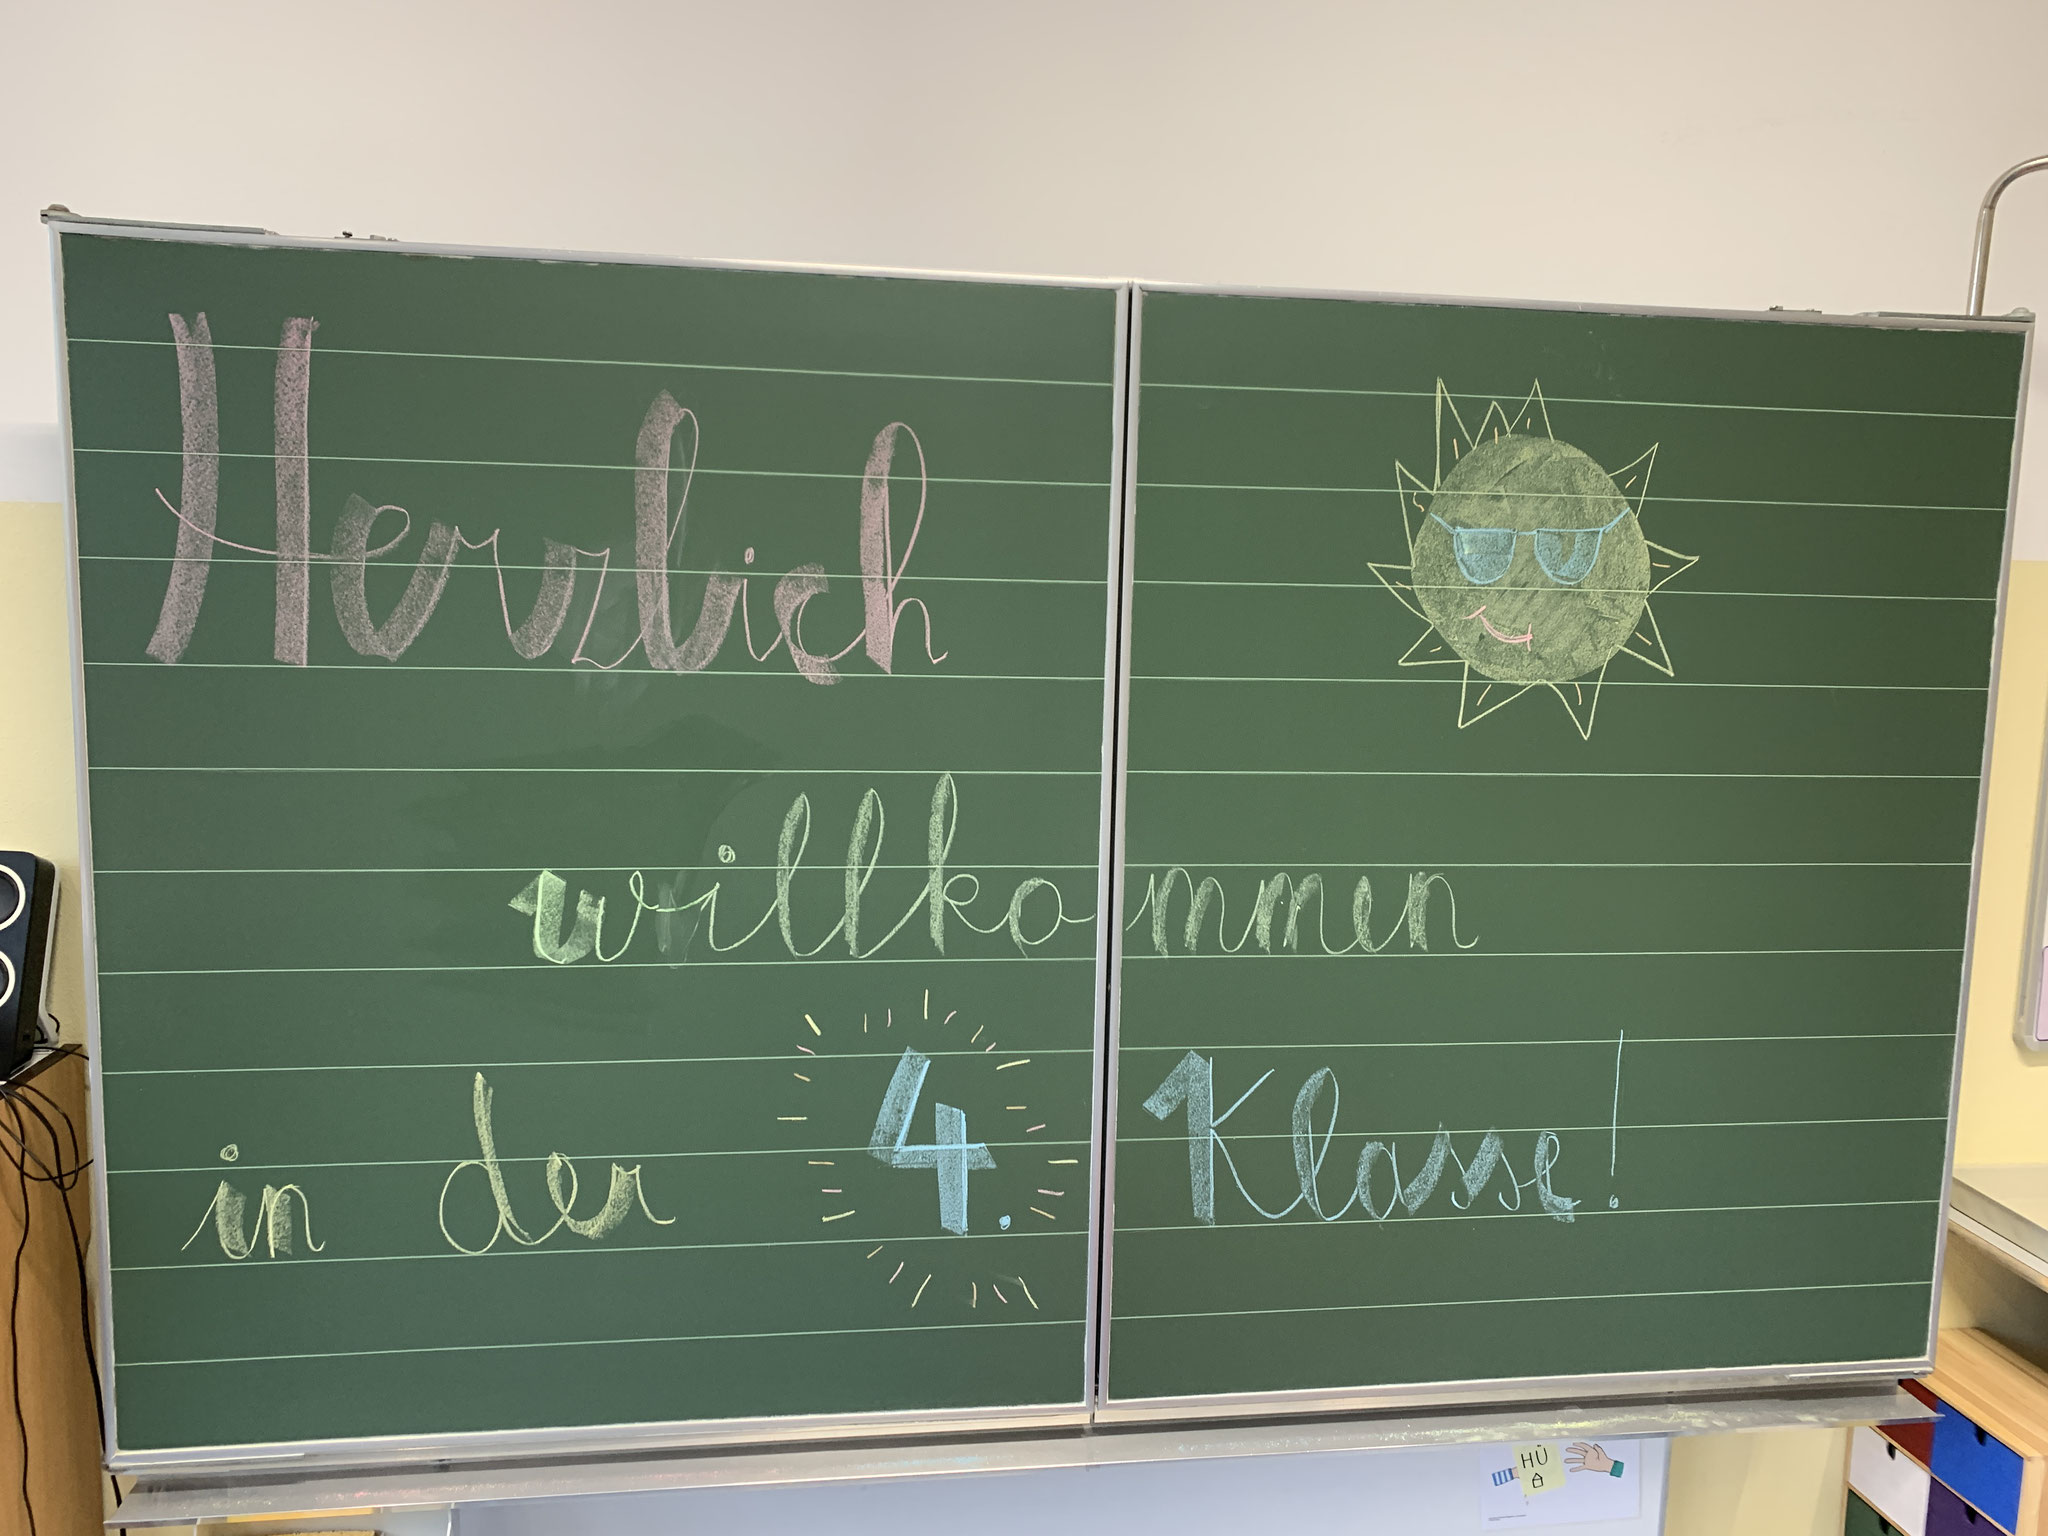 Herzlich
willkommen
in der 4. Klasse!
HÜ